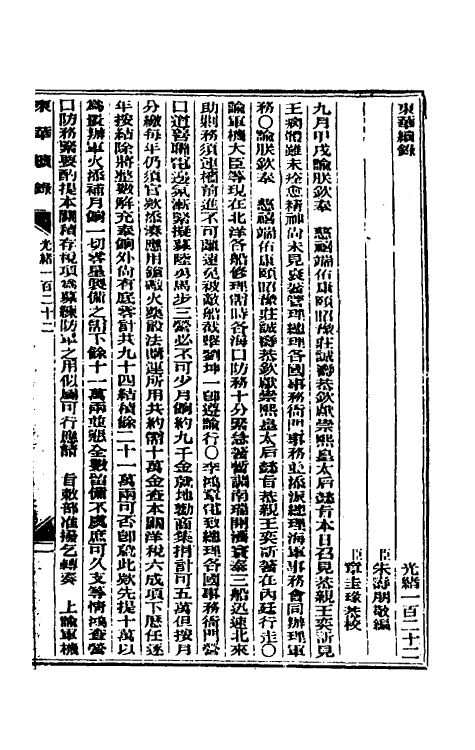 東華續錄 光緒一百二十二
臣朱壽朋敬編
臣章圭瑑恭校
九月甲戌諭朕欽奉 慈禧端佑康頤昭豫莊誠壽恭欽獻崇熙皇太后懿旨本日召見恭親王奕訢見
王病體雖未痊愈精神尚未見衰著管理總理各國事務衙門事務並添派總理海軍事務會同辦理軍
務〇諭朕欽奉 慈禧端佑康頤昭豫莊誠壽恭欽獻崇熙皇太后懿旨恭親王奕訢著在內廷行走〇
諭軍機大臣等現在北洋各船修理需時各海口防務十分緊急著暫調南瑞開濟寰泰三船迅速北來
助剿務須連檣前進不可離遠免被敵船截擊劉坤一即遵諭行〇李鴻章電致總理各國事務衙門營
口道善聯電邊氛漸緊擬募陸勇馬步三營必不可少月餉約九千金就地勸商集捐計可五萬但按月
分繳每年仍須官款添湊應用鎗礮火藥設法購運所用共約需十萬金查本關洋稅六成項下歷任逐
年按結除將整數解充奉餉外尚有底零計共九十四結積餘二十一萬兩可否即於此款先提十萬以
為撥辦軍火添補月餉一切零星製備之需下餘十一萬兩並懇全數留備不虞庶可久支等情鴻查營
口防務緊要酌提本關積存稅項為募練防軍之用似屬可行應請 旨敕部准撥乞轉奏 上諭軍機
東華續錄 光緒一百二十二